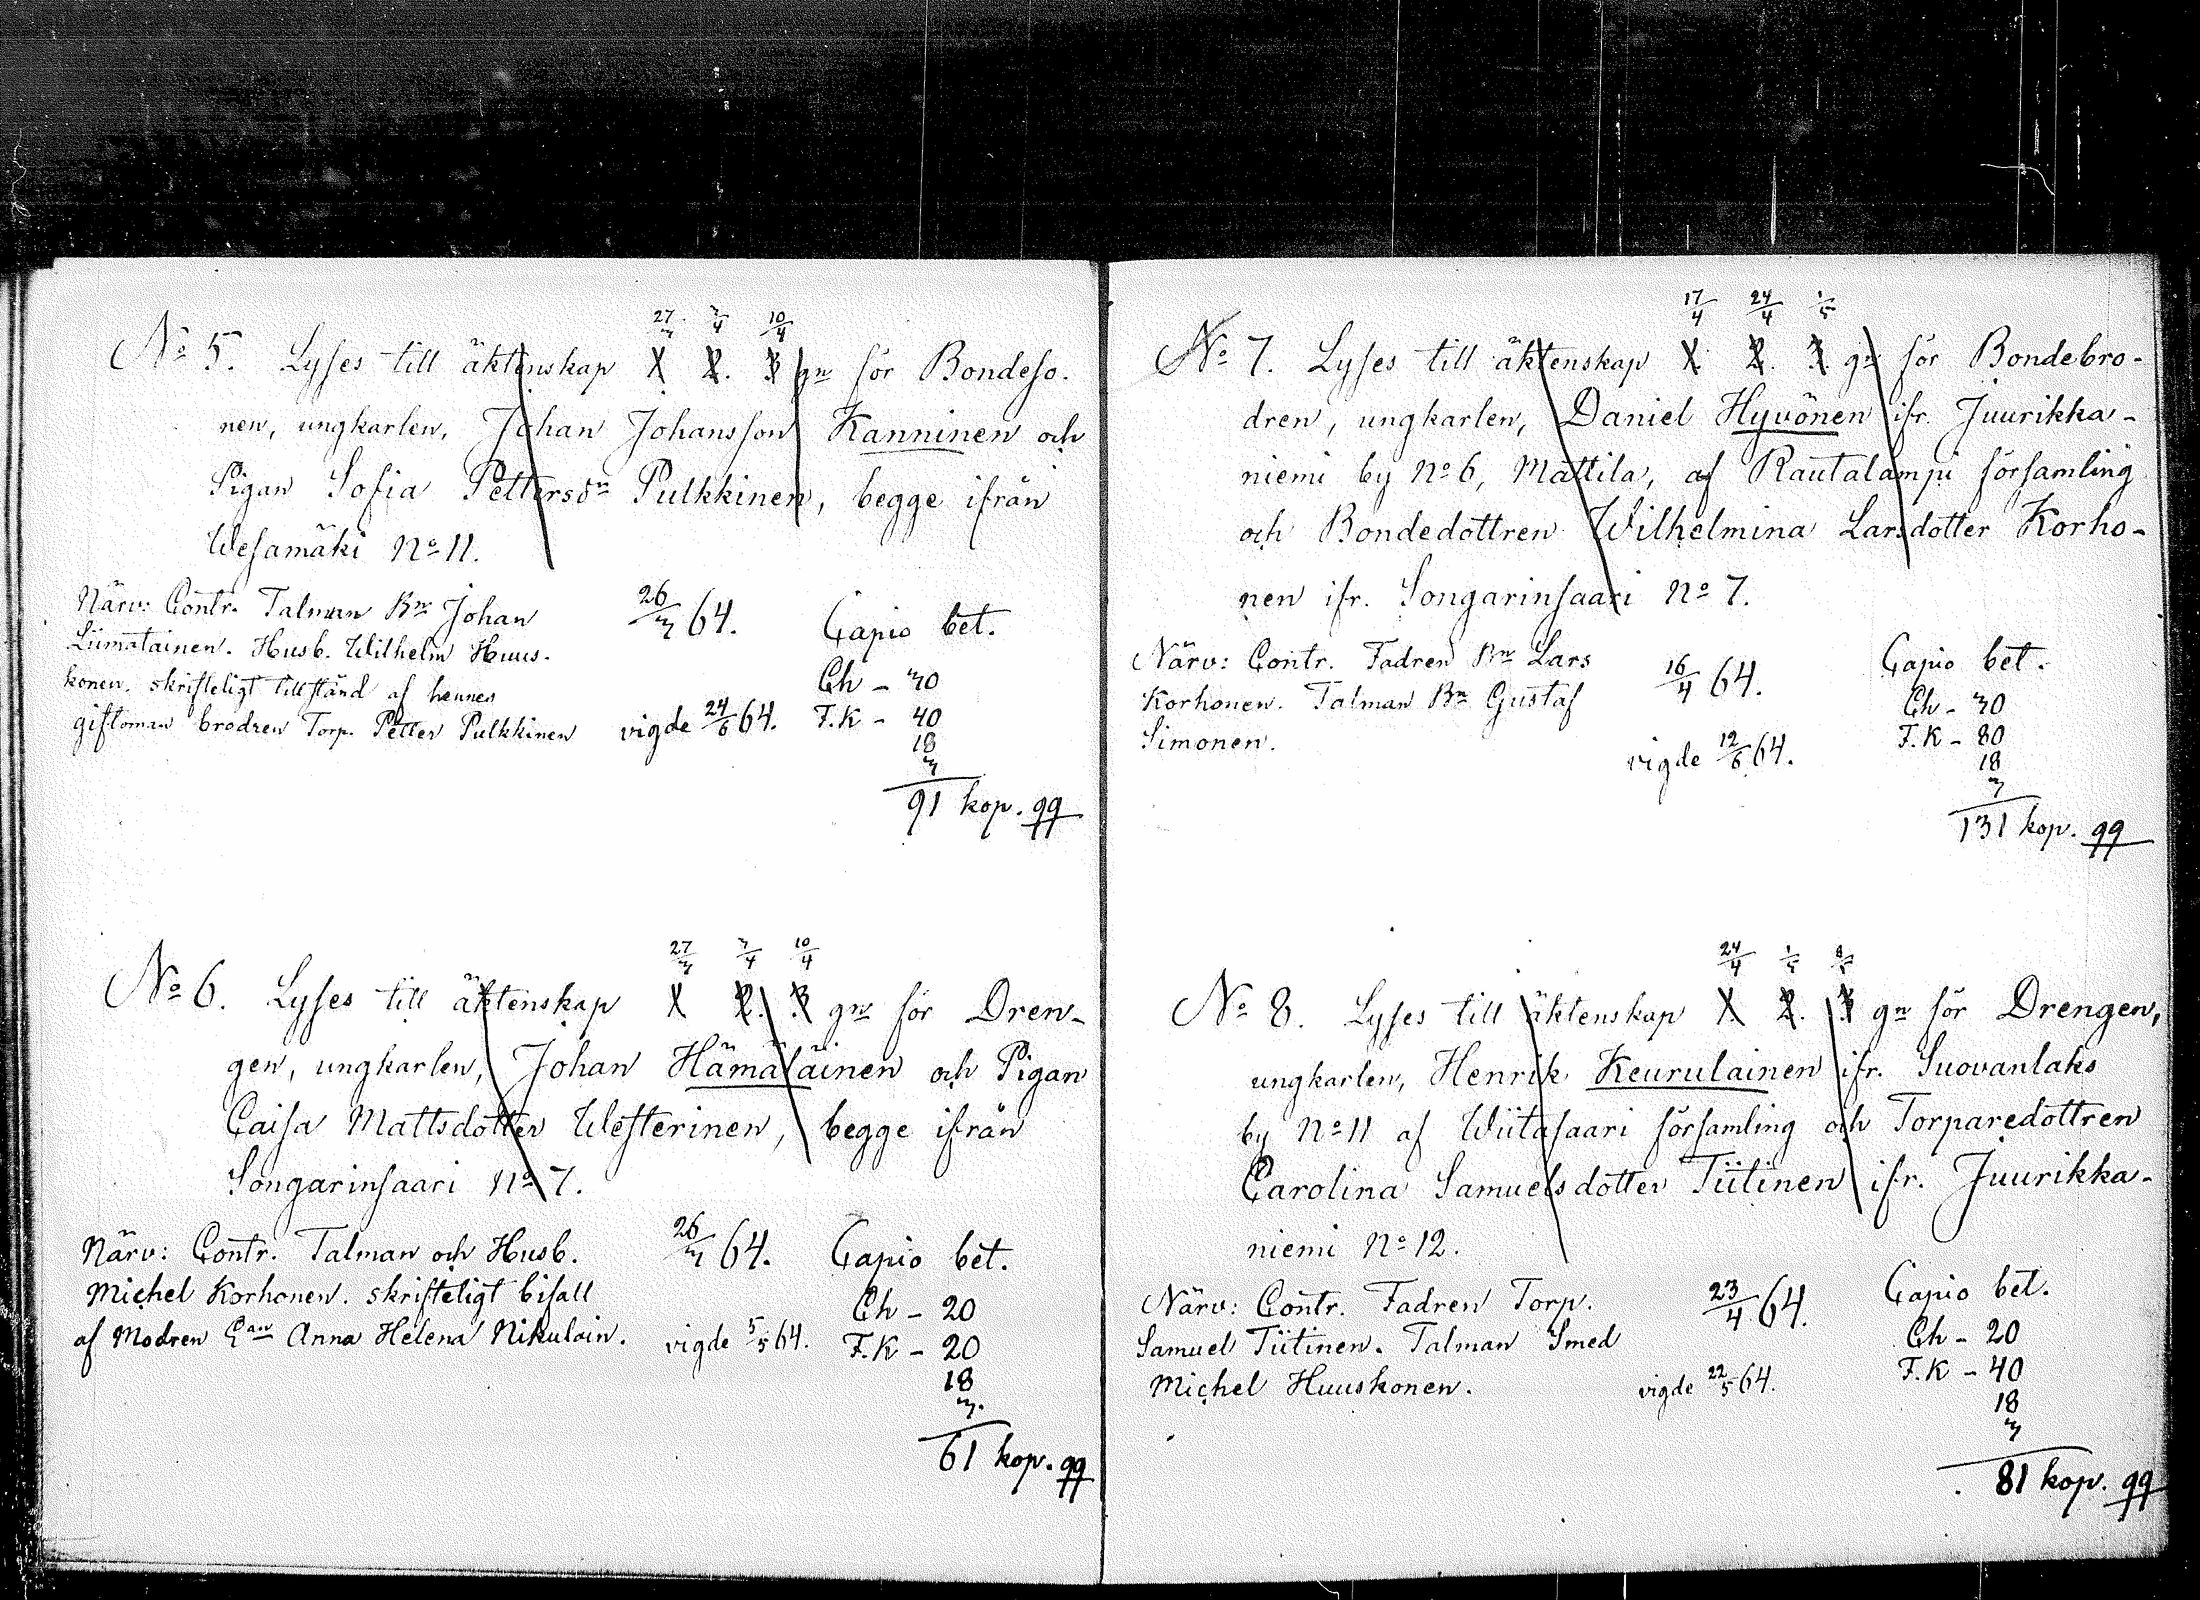 27/3 3/4 10/4
No 5. Lyses till äktenskap 1 2. 3 gn för Bondeso-
nen, ungkarlen, Johan Johansson Kanninen och
Pigan Sofia Pettersdr Pulkkinen, begge ifrån
Wesamäki No 11.
Närv: Contr. Talman Bn Johan
Liimatainen. Husb. Wilhelm Huus-
konen. skrifteligt tillstånd af hennes
giftoman brodren Torp. Petter Pulkkinen
26/3 64.
vigde 24/6 64.
Capio bet.
Ch - 30
F.K - 40
18
3
91 kop. qq
27/3 3/4 10/4
No 6. Lyses till äktenskap 1 2. 3. gn för Dren-
gen, ungkarlen, Johan Hämäläinen och Pigan
Caisa Mattsdotter Westerinen, begge ifrån
Songarinsaari No 7.
Närv: Contr. Talman och Husb.
Michel Korhonen. skrifteligt bifall
af Modren Anna Helena Nikulain.
26/3 64.
vigde 5/5 64.
Capio bet.
Ch - 20
F.K - 20
18
3.
61 kop. qq
17/4 24/4 1/5
No 7. Lyses till äktenskap 1. 2. 3. gn för Bondebro-
dren, ungkarlen, Daniel Hyvönen ifr. Juurikka-
niemi by No 6, Mattila, af Rautalampi församling
och Bondedottren Wilhelmina Larsdotter Korho-
nen ifr. Songarinsaari No 7.
Närv: Contr. Fadren Bn Lars
Korhonen. Talman Bn Gustaf
Simonen.
16/4 64.
vigde 12/6 64.
Capio bet.
Ch - 30
F.K - 80
18
3
131 kop. qq
24/4 1/5 8/5
No 8. Lyses till äktenskap 1. 2. 3 gn för Drengen,
ungkarlen, Henrik Keurulainen ifr. Suovanlaks
by No 11 af Wiitasaari församling och Torparedottren
Carolina Samuelsdotter Tiitinen ifr. Juurikka-
niemi No 12.
Närv: Contr. Fadren Torp.
Samuel Tiitinen. Talman Smed
Michel Huuskonen.
23/4 64.
vigde 22/5 64.
Capio bet.
Ch - 20
F.K - 40
18
3
81 kop. qq